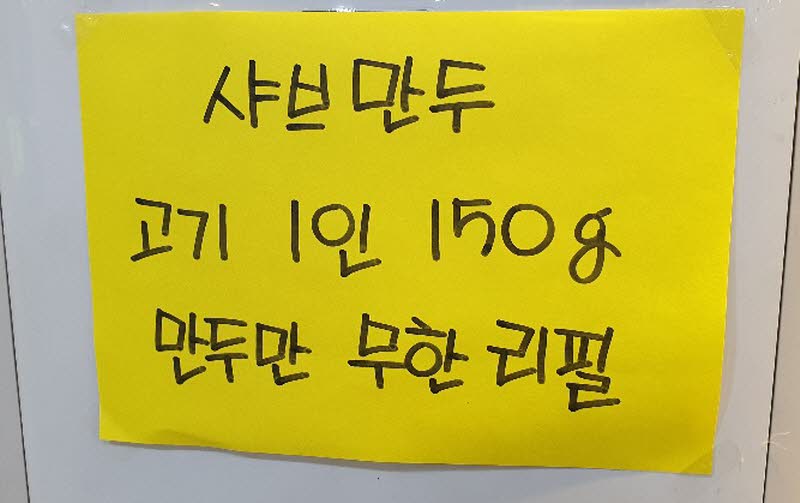 샤브만두
고기 1인 150g
만두만 무한 리필